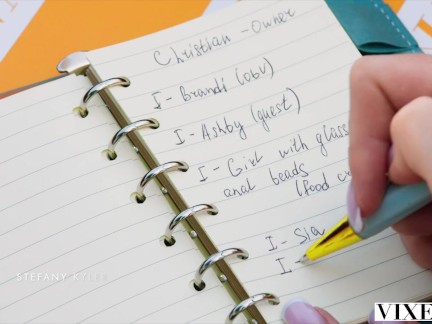 Christian - Owner
I - Brandi (obv)
I - Ashby (guest)
I - Girl with glass
anal beads
(food
I - Sla
I -
STEFANY
VIXE